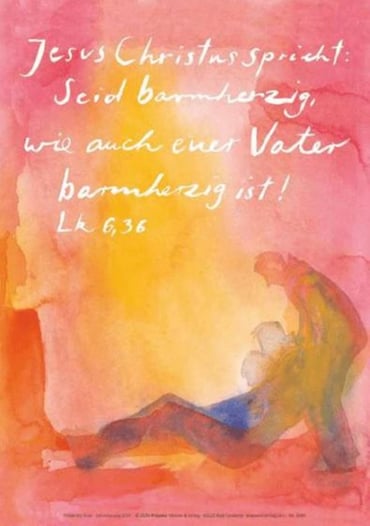 Jesus Christus spricht:
Seid barmherzig,
wie auch euer Vater
barmherzig ist!
Lk 6,36